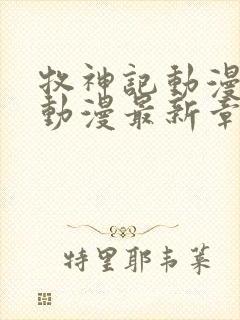 牧神記動漫
動漫最新章
特里耶韦莱